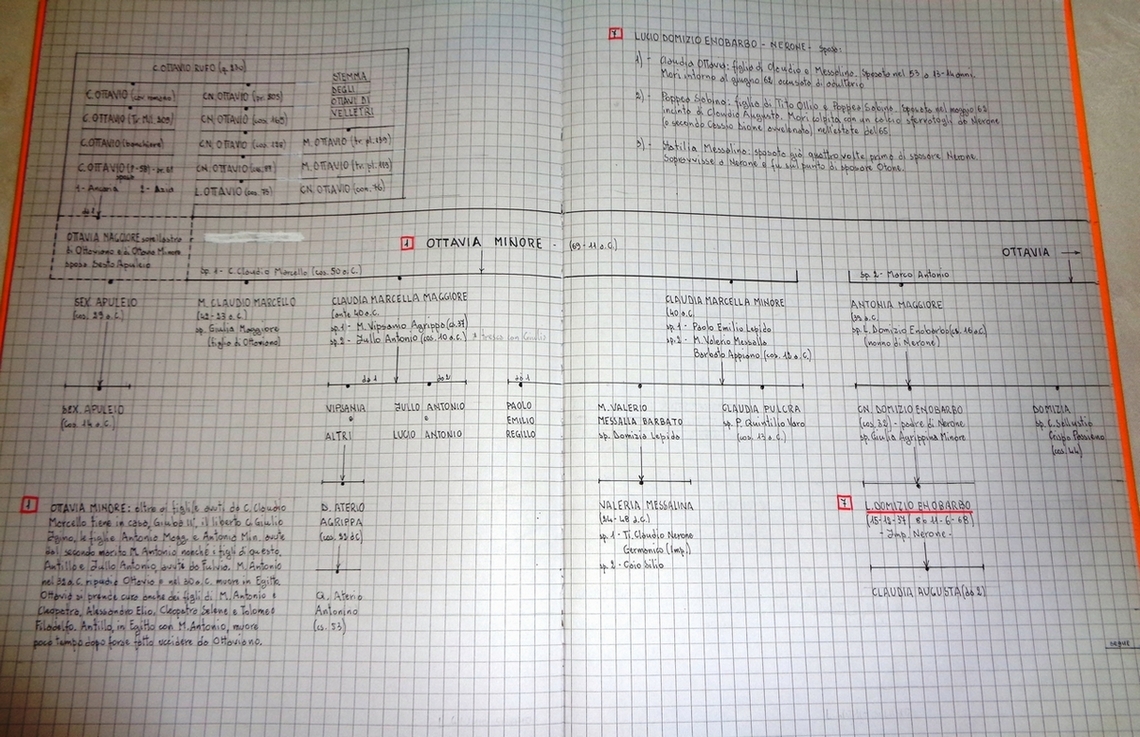 C. OTTAVIO RUFO (q. 230)
STEMMA
DEGLI
OTTAVI DI
VELLETRI
C. OTTAVIO
CN. OTTAVIO (pr. 205)
C. OTTAVIO (Tr. Mil. 205)
CN. OTTAVIO (cos. 165)
C. OTTAVIO (banchiere)
CN. OTTAVIO (cos. 128)
M. OTTAVIO (tr. pl. 133)
C. OTTAVIO
CN. OTTAVIO
M. OTTAVIO (tr. pl.
sposa
1- Ancaria 2- Azia
L. OTTAVIO (cos. 75)
CN. OTTAVIO (cos. 76)
da 1
7 LUCIO DOMIZIO ENOBARBO - NERONE - sposa:
1) - Claudia Ottavia: figlia di Claudio e Messalina. Sposata nel 53 a 13-14 anni.
Morì intorno al giugno 62 accusata di adulterio
2) - Poppea Sabina: figlia di Tito Ollio e Poppea Sabina. Sposata nel maggio 62
incinta di Claudia Augusta. Morì colpita con un calcio sferratogli da Nerone
(o secondo Cassio Dione avvelenata) nell'estate del 65
3) - Statilia Messalina: sposata già quattro volte prima di sposare Nerone.
Sopravvisse a Nerone e fu sul punto di sposare Otone.
OTTAVIA MAGGIORE sorellastra
di Ottaviano e di Ottavia Minore
sposa Sesto Apuleio
1 OTTAVIA MINORE - (69-11 a.C.)
OTTAVIA →
sp. 1- C. Claudio Marcello (cos. 50 a.C.)
sp. 2- Marco Antonio
SEX. APULEIO
(cos. 29 a.C.)
M. CLAUDIO MARCELLO
(42-23 a.C.)
sp. Giulia Maggiore
(figlia di Ottaviano)
CLAUDIA MARCELLA MAGGIORE
(ante 40 a.C.)
sp. 1- M. Vipsanio Agrippa (cs. 37)
sp. 2- Jullo Antonio (cos. 10 a.C.)
CLAUDIA MARCELLA MINORE
(40 a.C.)
sp. 1- Paolo Emilio Lepido
sp. 2- M. Valerio Messalla
Barbato Appiano (cos. 12 a.C.)
ANTONIA MAGGIORE
(39 a.C.
sp. L. Domizio Enobarbo (cs. 16 a.C)
(nonno di Nerone)
da 1
da 2
da 1
SEX. APULEIO
(cos. 14 a.C.)
VIPSANIA
e
ALTRI
JULLO ANTONIO
e
LUCIO ANTONIO
PAOLO
EMILIO
REGILLO
M. VALERIO
MESSALLA BARBATO
sp. Domizia Lepida
CLAUDIA PULCRA
sp. P. Quintilio Varo
(cos. 13 a.C.)
CN. DOMIZIO ENOBARBO
(cos. 32) - padre di Nerone
sp. Giulia Agrippina Minore
DOMIZIA
sp. C. Sallustio
Crispo Passieno
(cos 44)
1 OTTAVIA MINORE: oltre ai figli/e avuti da C. Claudio
Marcello tiene in casa, Giuba II°, il liberto C. Giulio
Igino, le figlie Antonia Magg. e Antonia Min. avute
dal secondo marito M. Antonio nonchè i figli di questo,
Antillo e Jullo Antonio, avuti da Fulvia. M. Antonio
nel 32 a.C. ripudia Ottavia e nel 30 a.C. muore in Egitto
Ottavia si prende cura anche dei figli di M. Antonio e
Cleopatra, Alessandro Elio, Cleopatra Selene e Tolomeo
Filadelfo. Antillo, in Egitto con M. Antonio, muore
poco tempo dopo forse fatto uccidere da Ottaviano.
D. ATERIO
AGRIPPA
(cos. 22 dC)
Q. Aterio
Antonino
(cs. 53)
VALERIA MESSALINA
(24-48 d.C.)
sp. 1- Ti. Claudio Nerone
Germanico (Imp.)
sp. 2- Caio Silio
7 L. DOMIZIO ENOBARBO
(15-12-37/ 8 o 11-6-68)
- Imp. Nerone -
CLAUDIA AUGUSTA (da 2)
segue